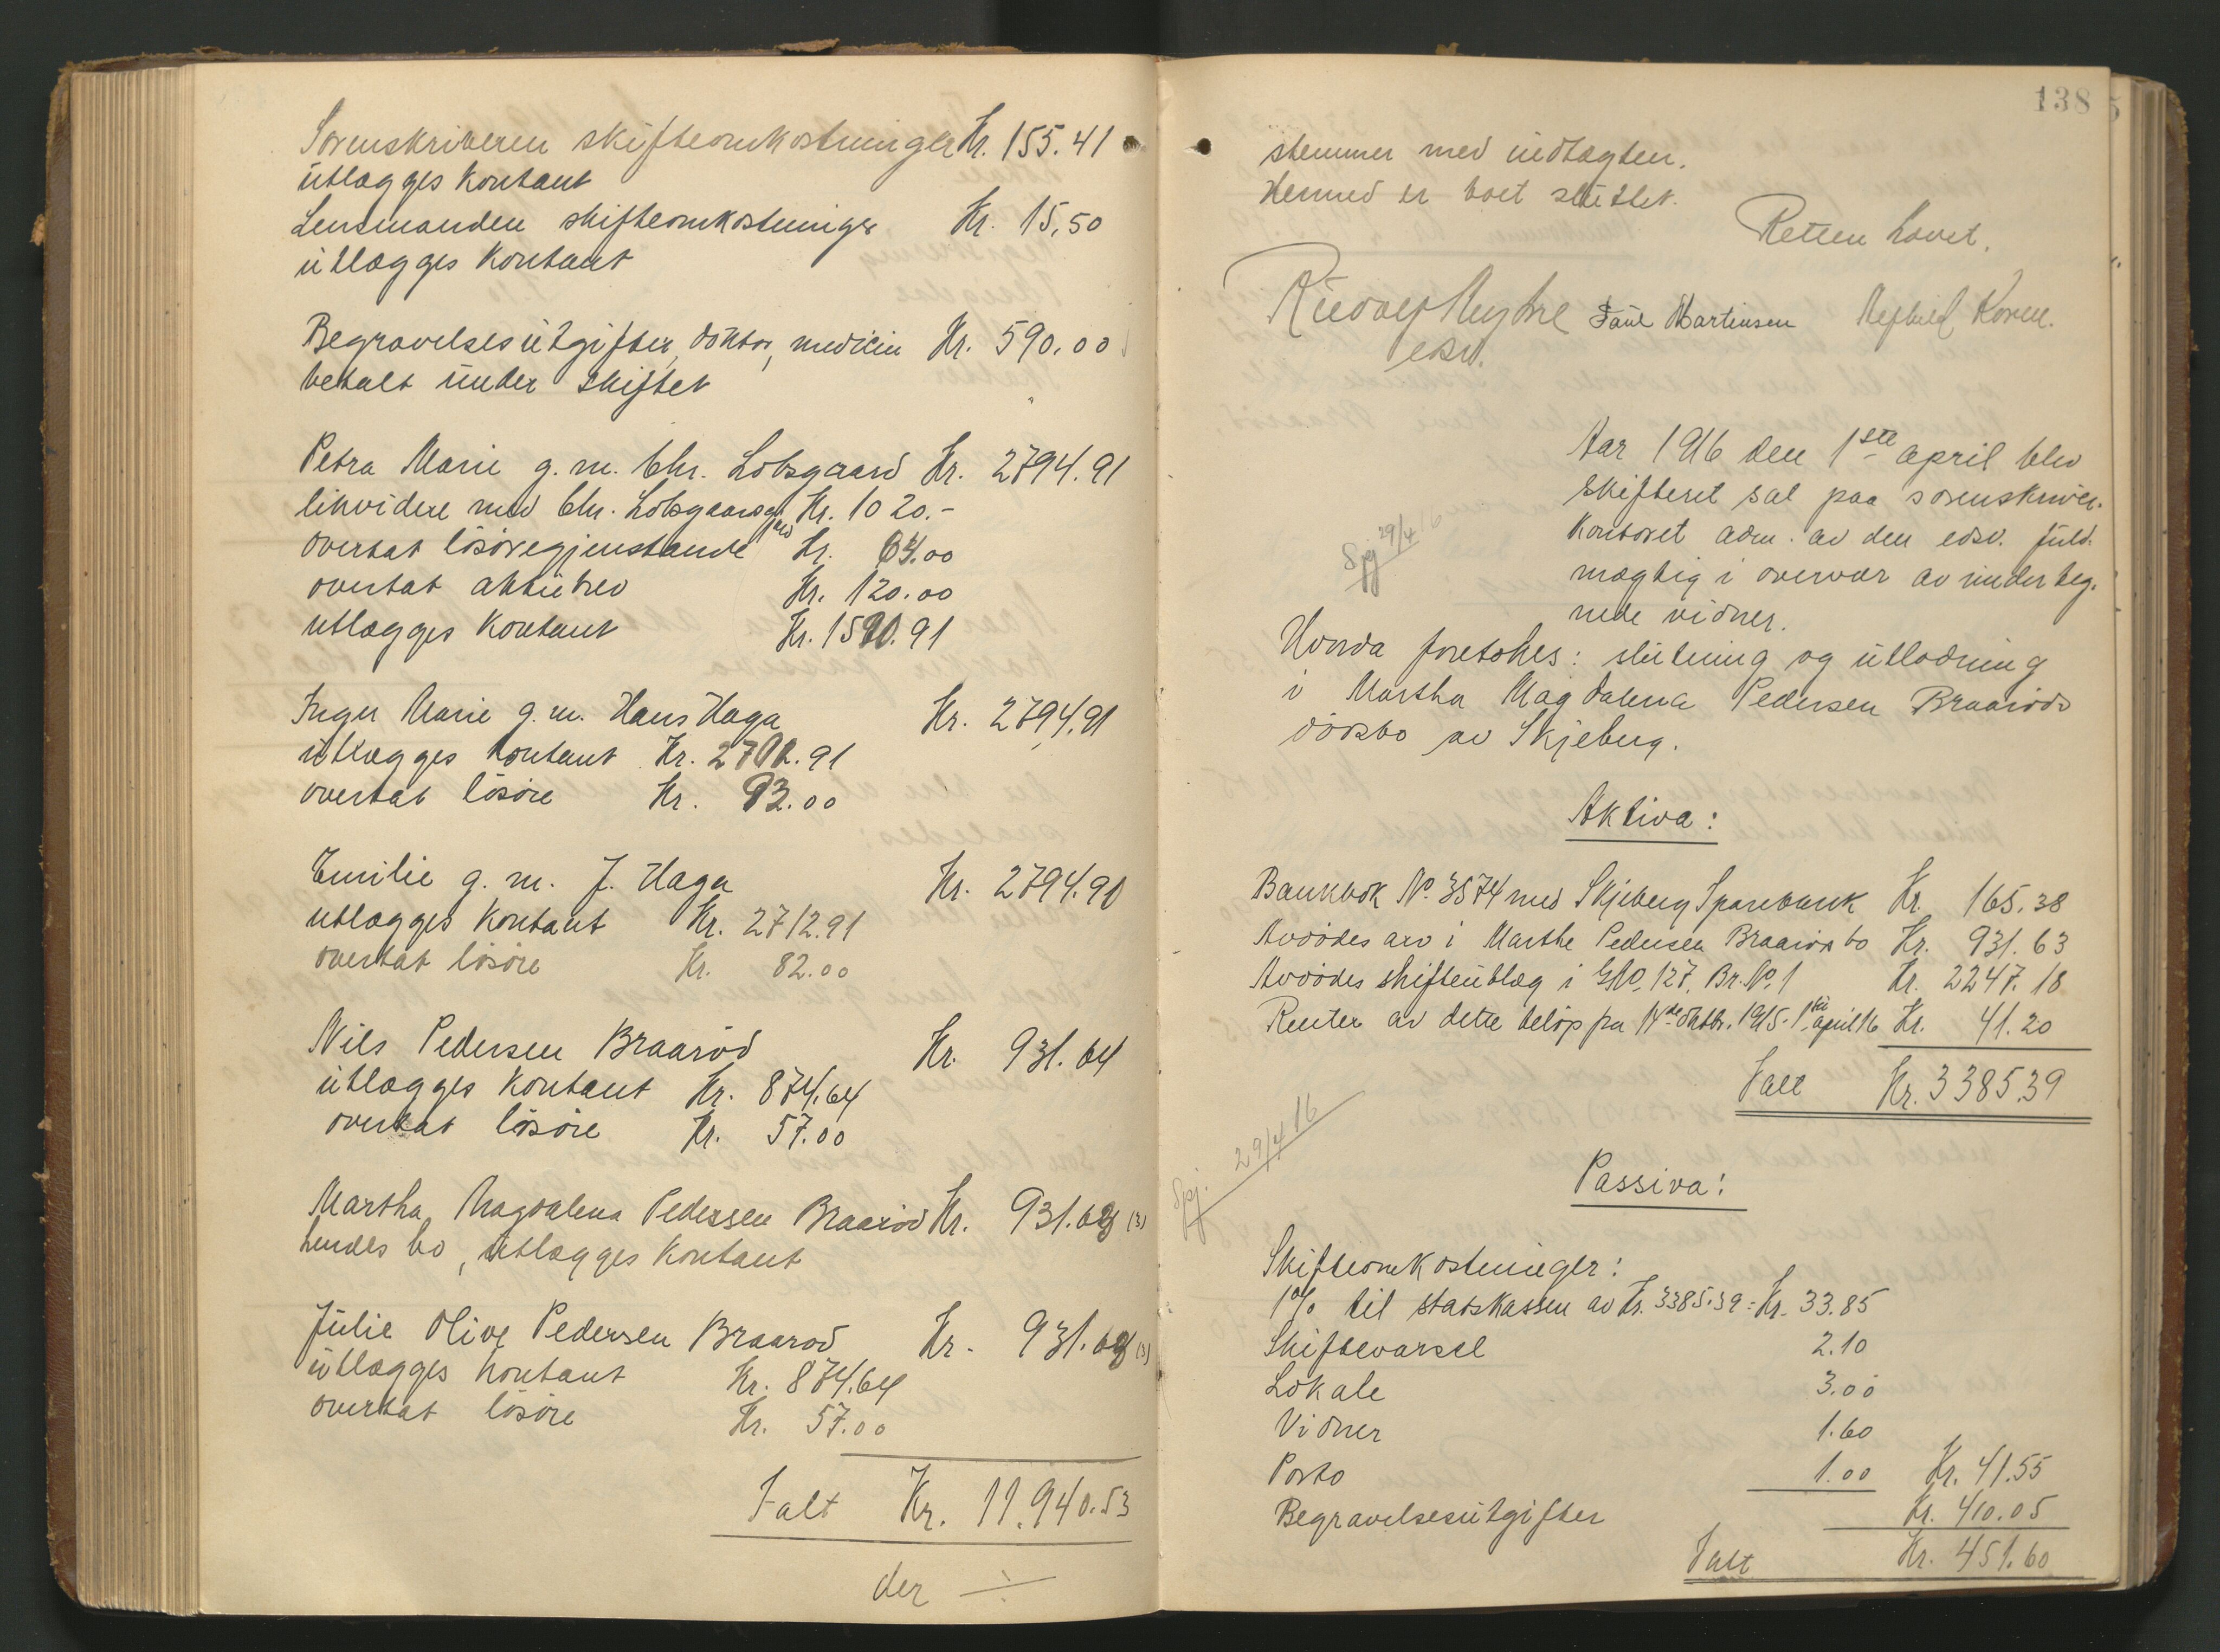 Sorenskriveren skifteomkostninger Kr. 155.41
utlægges kontant
Lensmanden skifteomkostninger Kr. 15,50
utlægges kontant
Begravelsesutgifter, doktor, medicin Kr. 590.00
betalt under skiftet
Petra Marie g. m. Chr. Lobsgaard Kr. 2794.91
likvidere med Chr. Lobsgaards Kr. 1020.-
overtat lösöregjenstande Kr. 64.00
overtat aktiebrev Kr. 120.00
utlægges kontant Kr. 1590.91
Inger Marie g. m. Hans Haga Kr. 2794.91
utlægges kontant Kr. 2702.91
overtat lösöre Kr. 92.00
Emilie g. m. J. Haga Kr. 2794.90
utlægges kontant Kr. 2712.91
overtat lösöre Kr. 82.00
Nils Pedersen Braaröd Kr. 931.64
utlægges kontant Kr. 874.64
overtat lösöre Kr. 57.00
Martha Magdalena Pedersen Braaröd Kr. 931.63 (3)
hendes bo, utlægges kontant
Julie Olive Pedersen Braarod Kr. 931.63 (3)
utlægges kontant Kr. 874.64
overtat lösöre Kr. 57.00
Ialt Kr. 11.940.53
der ÷
138
stemmer med indtægten.
Hermed er boet sluttet.
Retten hævet.
edsv. Paul Martinsen
Aar 1916 den 1ste april blev
skifteret sat paa sorenskriver-
kontoret adm. av den edsv. fuld-
mægtig i overvær av underteg-
nede vidner.
Spj 29/4 16
Hvorda foretokes: slutning og utlodning
i Martha Magdalena Pedersen Braaröds
dödsbo av Skjeberg.
Aktiva:
Bankbok No. 3574 med Skjeberg Sparebank Kr. 165.38
Avdödes arv i Marthe Pedersen Braaröds bo Kr. 931.63
Avdödes skifteutlæg i GNo. 127, Br. No. 1 Kr. 2247.18
Renter av dette belöp fra 14de oktbr. 1915 - 1ste april 16 Kr. 41.20
Ialt Kr. 3385.39
Spj. 29/4 16
Passiva:
Skifteomkostninger:
1% til statskassen av Kr. 3385.39 = Kr. 33.85
Skiftevarsel 2.10
Lokale 3.00
Vidner 1.60
Porto 1.00 Kr. 41.55
Begravelsesutgifter Kr. 410.05
Ialt Kr. 451.60